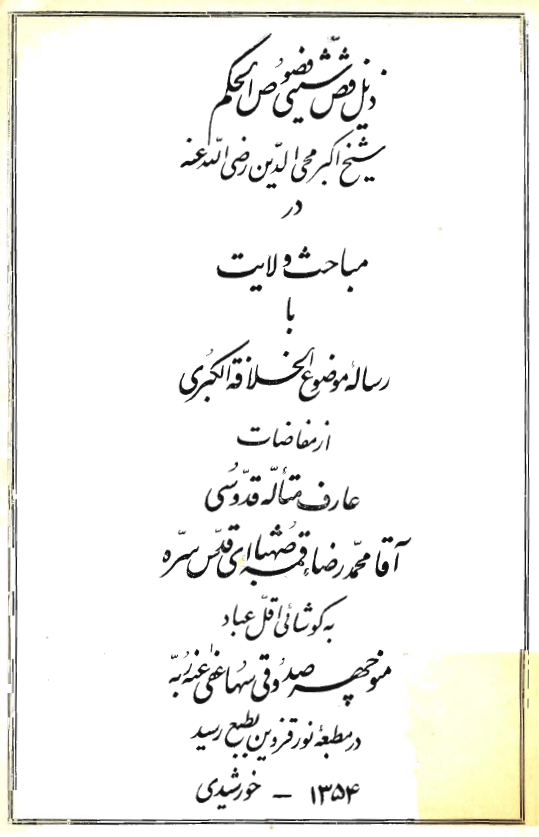 ذیل فصّ شیثی فصوص الحکم
شیخ اکبر محی الدّین رضی اللّه عنه
در
مباحث ولایت
با
رسالهٔ موضوع الخلافة الکبری
از مفاضات
عارف متألّه قدّوسی
آقا محمّدرضاء قمشه‌ای قدّس سرّه
به کوشائی اقلّ عباد
منوچهر صدوقی سها عفی عنه ربّه
در مطبعهٔ نور قزوین بطبع رسید
۱۳۵۴ – خورشیدی